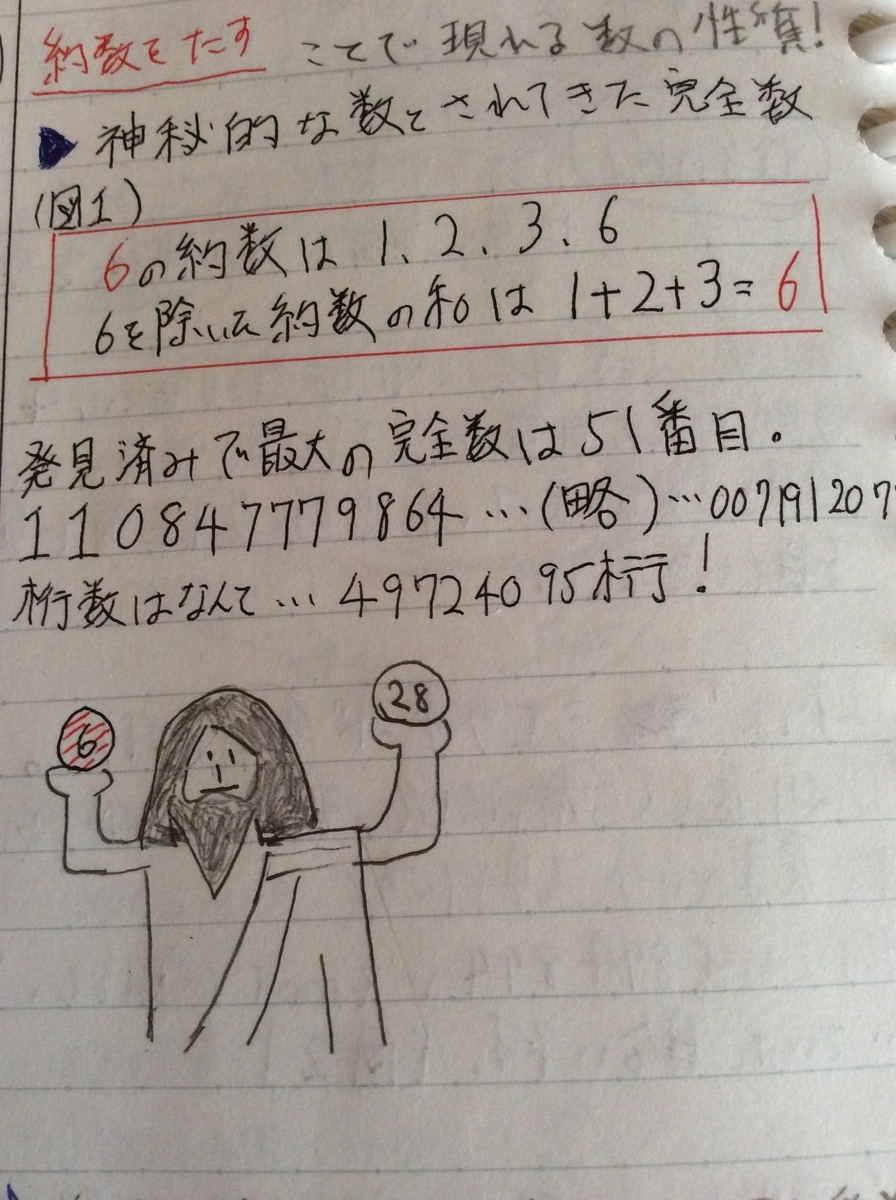 約数をたす ことで現れる数の性質!
神秘的な数とされてきた完全数
(図1)
6の約数は 1、2、3、6
6を除いた約数の和は 1+2+3=6
発見済みで最大の完全数は51番目。
110847779864…(略)…007191207
桁数はなんて…49724095桁!
6
28